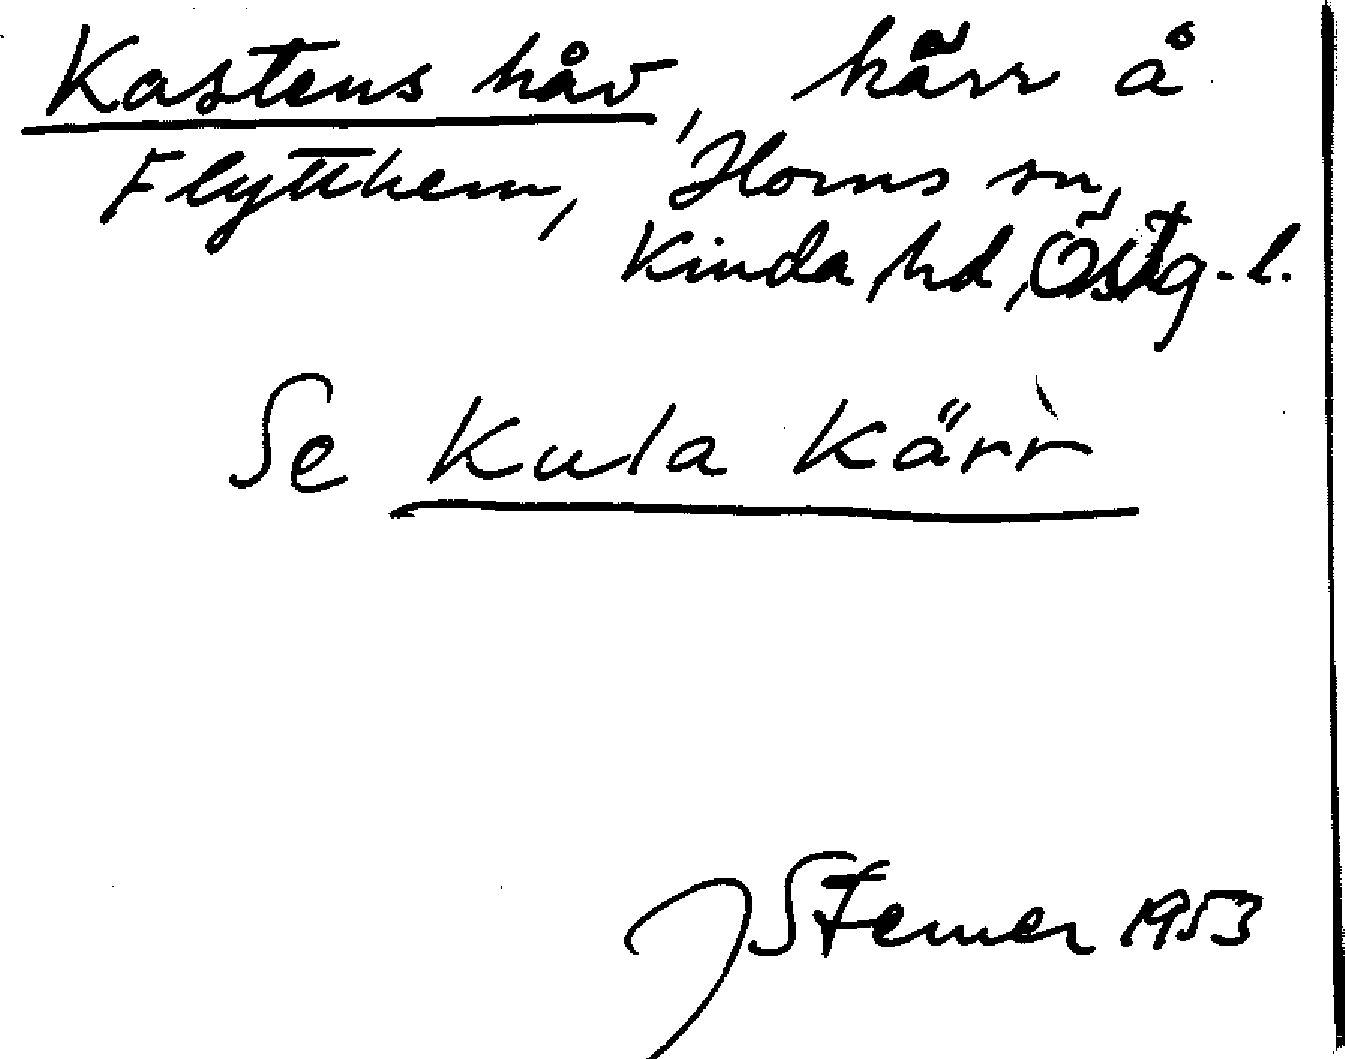 Kastens håv, kärr å
Flytthem, Horns sn,
Kinda hd, Östg-l.
Se Kula Kärr
J Sterner 1953